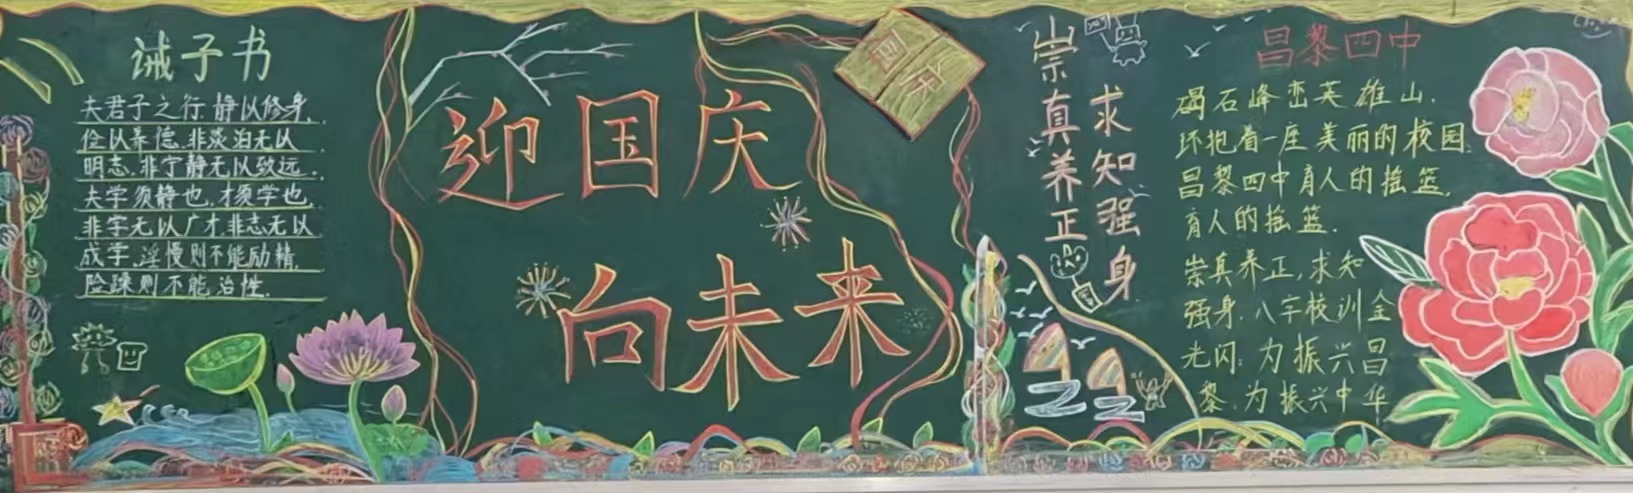 诫子书
夫君子之行.静以修身、
俭以养德.非淡泊无以
明志.非宁静无以致远.
夫学须静也.才须学也.
非学无以广才.非志无以
成学.淫慢则不能励精.
险躁则不能治性.
迎国庆
向未来
国庆
崇真养正
求知强身
昌黎四中
碣石峰峦英雄山.
环抱着一座美丽的校园.
昌黎四中育人的摇篮.
育人的摇篮.
崇真养正,求知
强身.八字校训金
光闪;为振兴昌
黎.为振兴中华